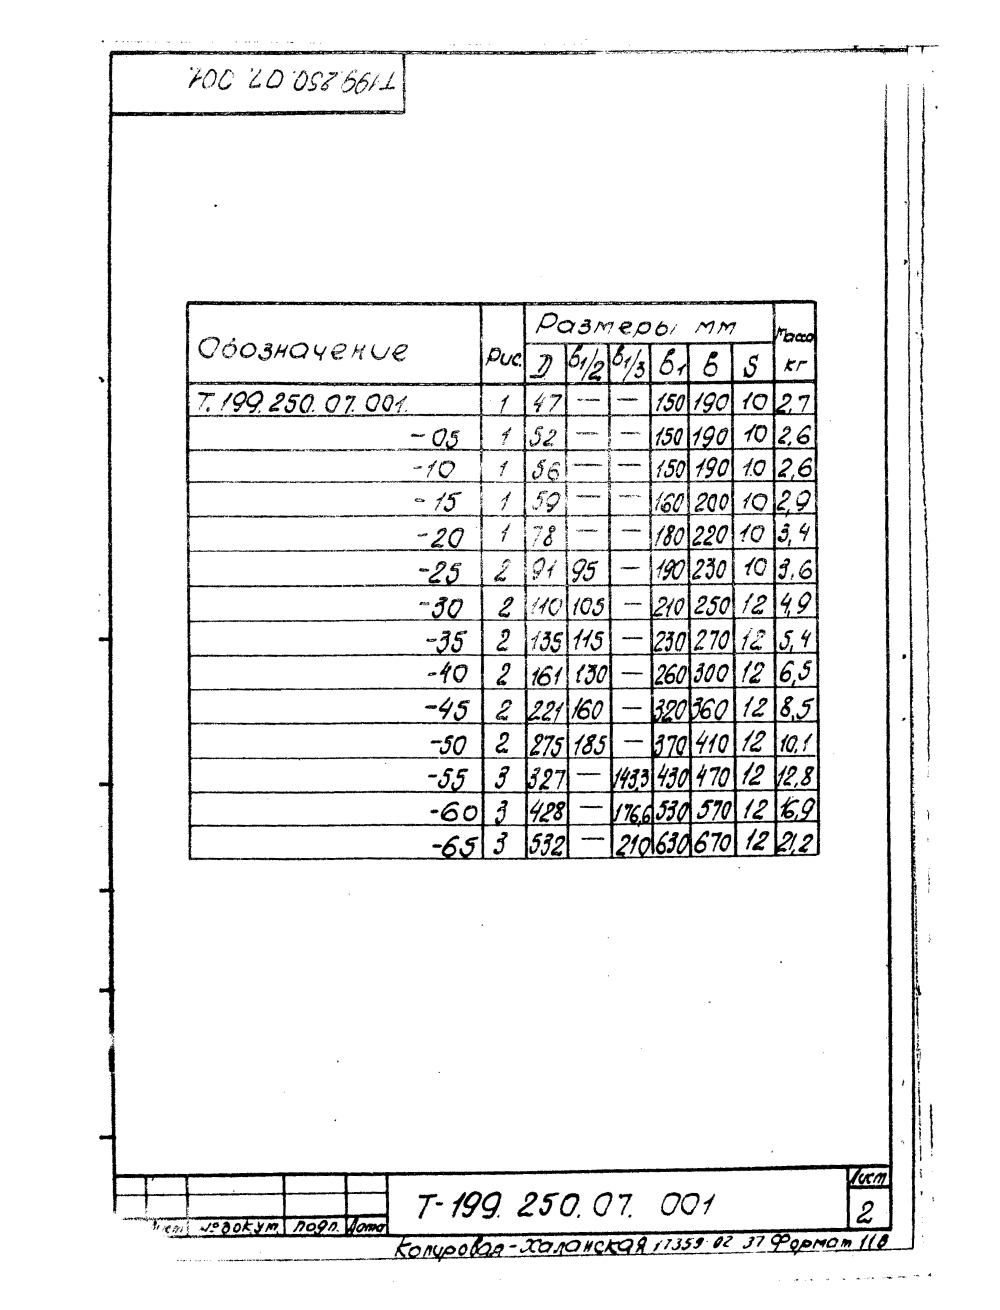 Т199.250.07.001
Обозначение Рис. Размеры мм Масса кг
D в1/2 в1/3 в1 в S
Т. 199.250.07.001. 1 47 — — 150 190 10 2,7
-05 1 52 — — 150 190 10 2,6
-10 1 56 — — 150 190 10 2,6
-15 1 59 — — 160 200 10 2,9
-20 1 78 — — 180 220 10 3,4
-25 2 91 95 — 190 230 10 3,6
-30 2 110 105 — 210 250 12 4,9
-35 2 135 115 — 230 270 12 5,4
-40 2 161 130 — 260 300 12 6,5
-45 2 221 160 — 320 360 12 8,5
-50 2 275 185 — 370 410 12 10,1
-55 3 327 — 143,3 430 470 12 12,8
-60 3 428 — 176,6 530 570 12 16,9
-65 3 532 — 210 630 670 12 21,2
Т-199. 250. 07. 001
Лист
2
Лист № докум. подп. Дата
Копировал - Халанская 17359-02 37 Формат 11В